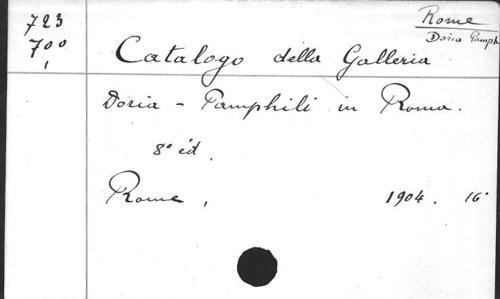 723
700
1
Rome
Doria Pamph
Catalogo della Galleria
Doria - Pamphili in Roma.
8° éd.
Rome, 1904. 16°